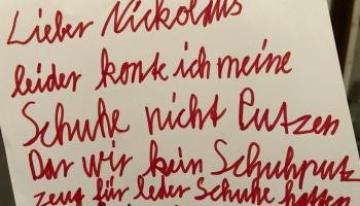 Lieber Nickolaus
leider konte ich meine
Schuhe nicht Putzen
Dar wir kein Schuhputz
zeug für leder Schuhe hatten